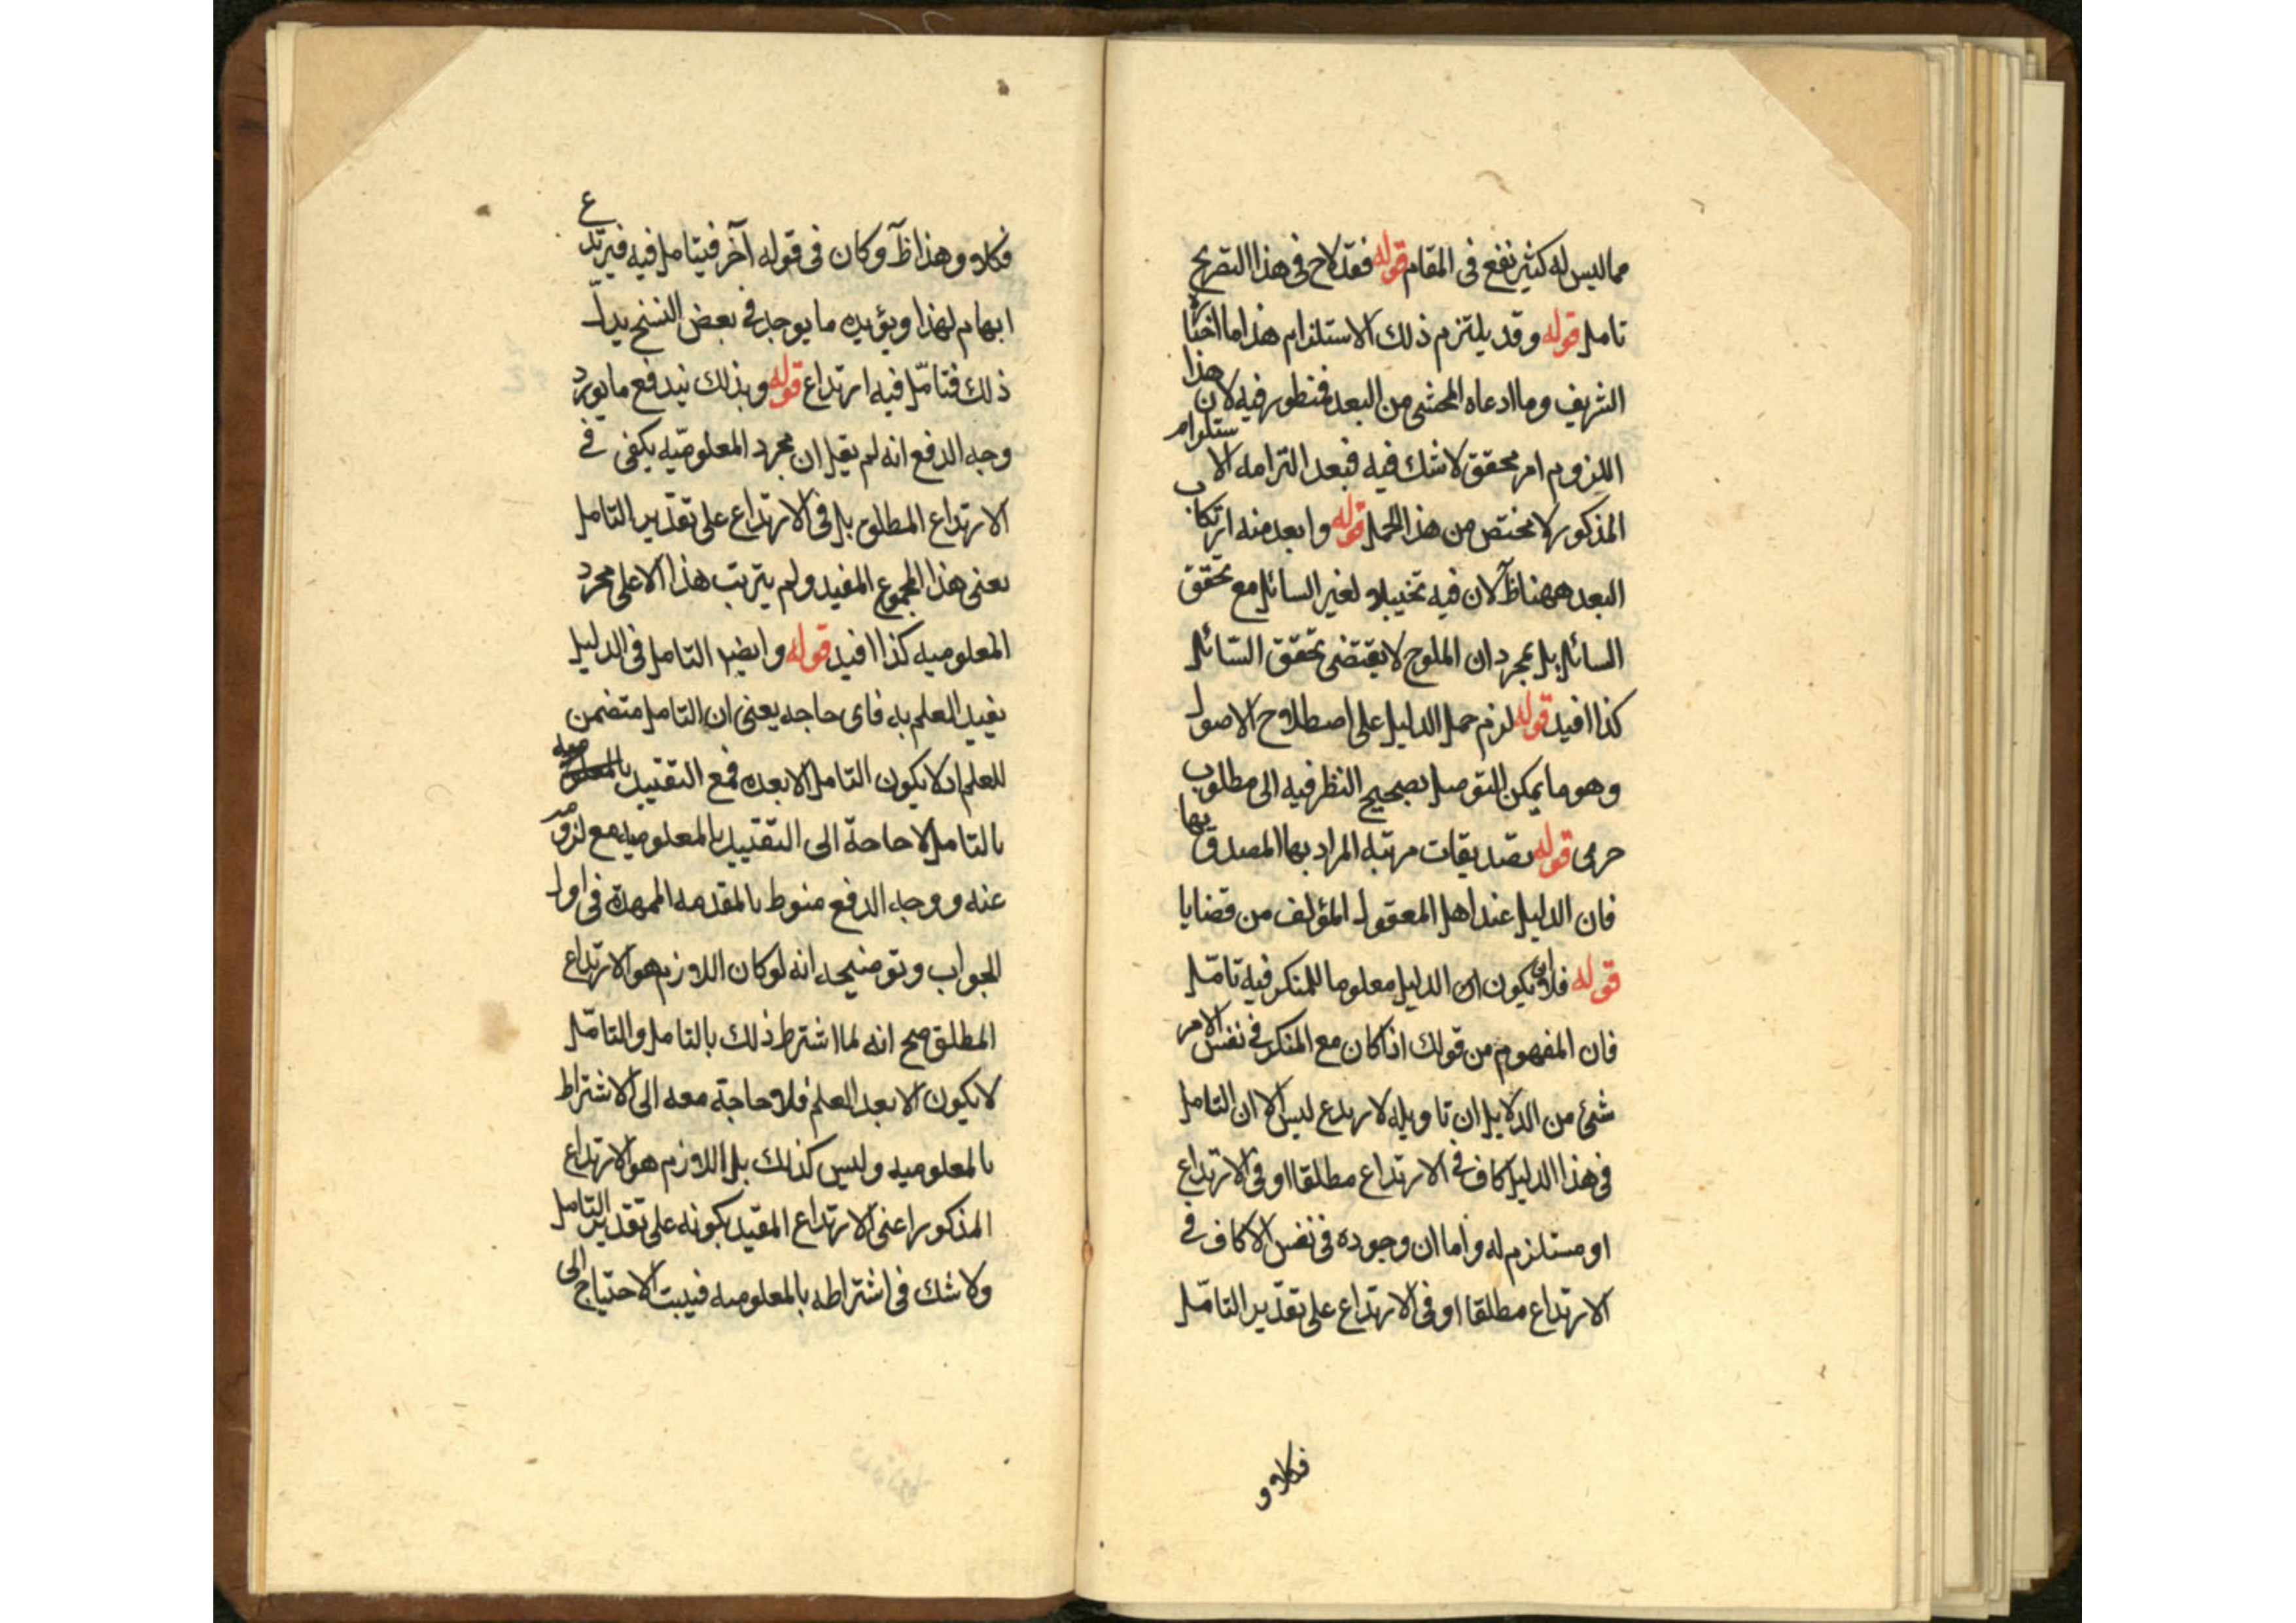 مما ليس له كثير نفع فى المقام قوله فقد لاح فى هذا التصريح
تامل قوله وقد يلتزم ذلك الاستلزام هذا ما اختاره
الشريف وما ادعاه المحشى من البعد فمنظور فيه لان هذا
اللزوم امر محقق لا شك فيه فبعد التزامه الاستلزام
المذكور لا مختص من هذا الحمل قوله وابعد منه ارتكاب
البعد ههنا ظآ لان فيه تخييلا لغير السائل مع تحقق
السائل بل بمجرد ان الملوح لا يقتضى تحقق السّائل
كذا افيد قوله لزم حمل الدليل على اصطلاح الاصول
وهو ما يمكن التوصل بصحيح النظر فيه الى مطلوب
خرمى قوله تصديقات مرتبه المراد بها المصدق بها
فان الدليل عند اهل المعقول المؤلف من قضايا
قوله فلان يكون الدليل معلوما للمنكر فيه تامّل
فان المفهوم من قولك اذا كان مع المنكر فى نفس الامر
شئ من الدلايل ان تاويله لارتدع ليس الا ان التامل
فى هذا الدليل كاف فى الارتداع مطلقا او فى الارتداع
او مستلزم له واما ان وجوده فى نفس الا كاف فى
الارتداع مطلقا او فى الارتداع على تقدير التامّل
فكلا و
فكلا وهذا ظآ وكان فى قوله آخر فيتامل فيه فيرتدع
ابهام لهذا ويؤيده ما يوجد فى بعض النسخ بدل
ذلك فتامّل فيه ارتداع قوله وبذلك نيدفع ما يورد
وجه الدفع انه لم يقل ان مجرد المعلوميّه يكفى فى
الارتداع المطلوب بل فى الارتداع على تقدير التامل
يعنى هذا المجموع المفيد ولم يترتب هذا الا على مجرد
المعلوميه كذا افيد قوله وايضا التامل فى الدليل
يفيد العلم به فاى حاجه يعنى ان التامل متضمن
للعلم اذ لا يكون التامل الا بعده فمع التقييد
بالتامل لا حاجة الى التقييد بالمعلوميه مع لزومه
عنه ووجه الدفع منوط بالمقدمه الممهدة فى اول
الجواب وتوضيحه انه لو كان اللازم هو الارتداع
المطلق صح انه لما اشترط ذلك بالتامل والتامّل
لا يكون الا بعد العلم فلا حاجة معه الى الاشتراط
بالمعلوميه وليس كذلك بل اللازم هو الارتداع
المذكور اعنى الارتداع المقيد بكونه على تقدير التامل
ولا شك فى اشتراطه بالمعلوميه فيبت الاحتياج الى